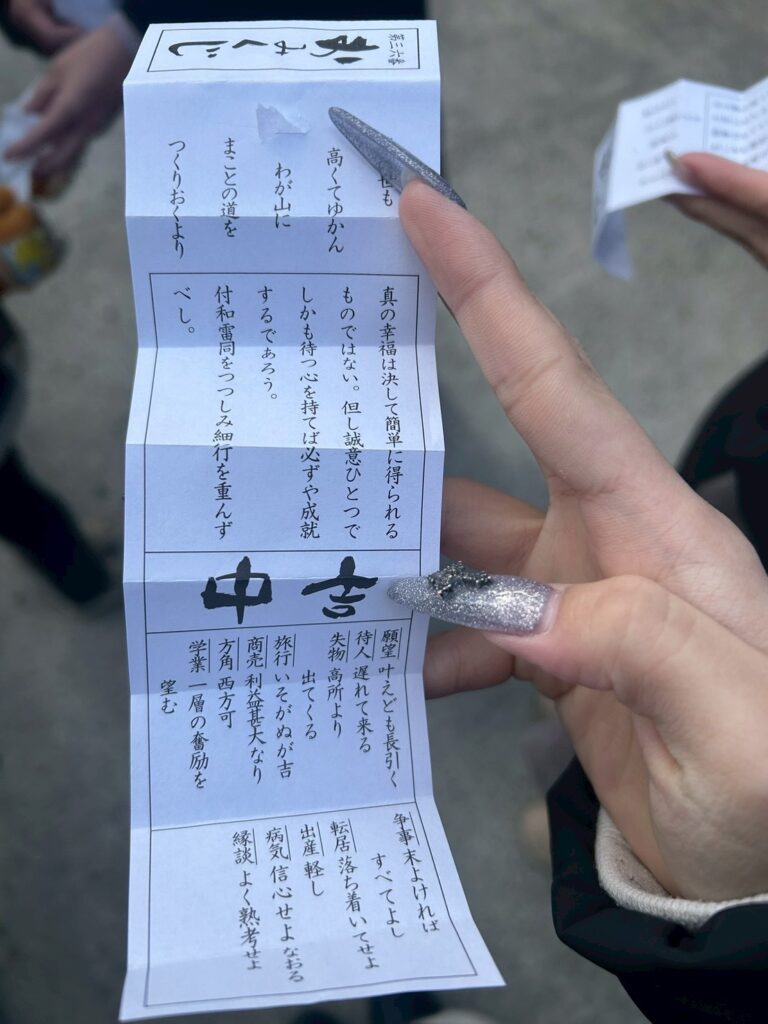 第三六番
おみくじ
世も
高くてゆかん
わが山に
まことの道を
つくりおくより
真の幸福は決して簡単に得られる
ものではない。但し誠意ひとつで
しかも待つ心を持てば必ずや成就
するであろう。
付和雷同をつつしみ細行を重んず
べし。
吉中
願望 叶えども長引く
待人 遅れて来る
失物 高所より
出てくる
旅行 いそがぬが吉
商売 利益甚大なり
方角 西方可
学業 一層の奮励を
望む
争事 末よければ
すべてよし
転居 落ち着いてせよ
出産 軽し
病気 信心せよなおる
縁談 よく熟考せよ